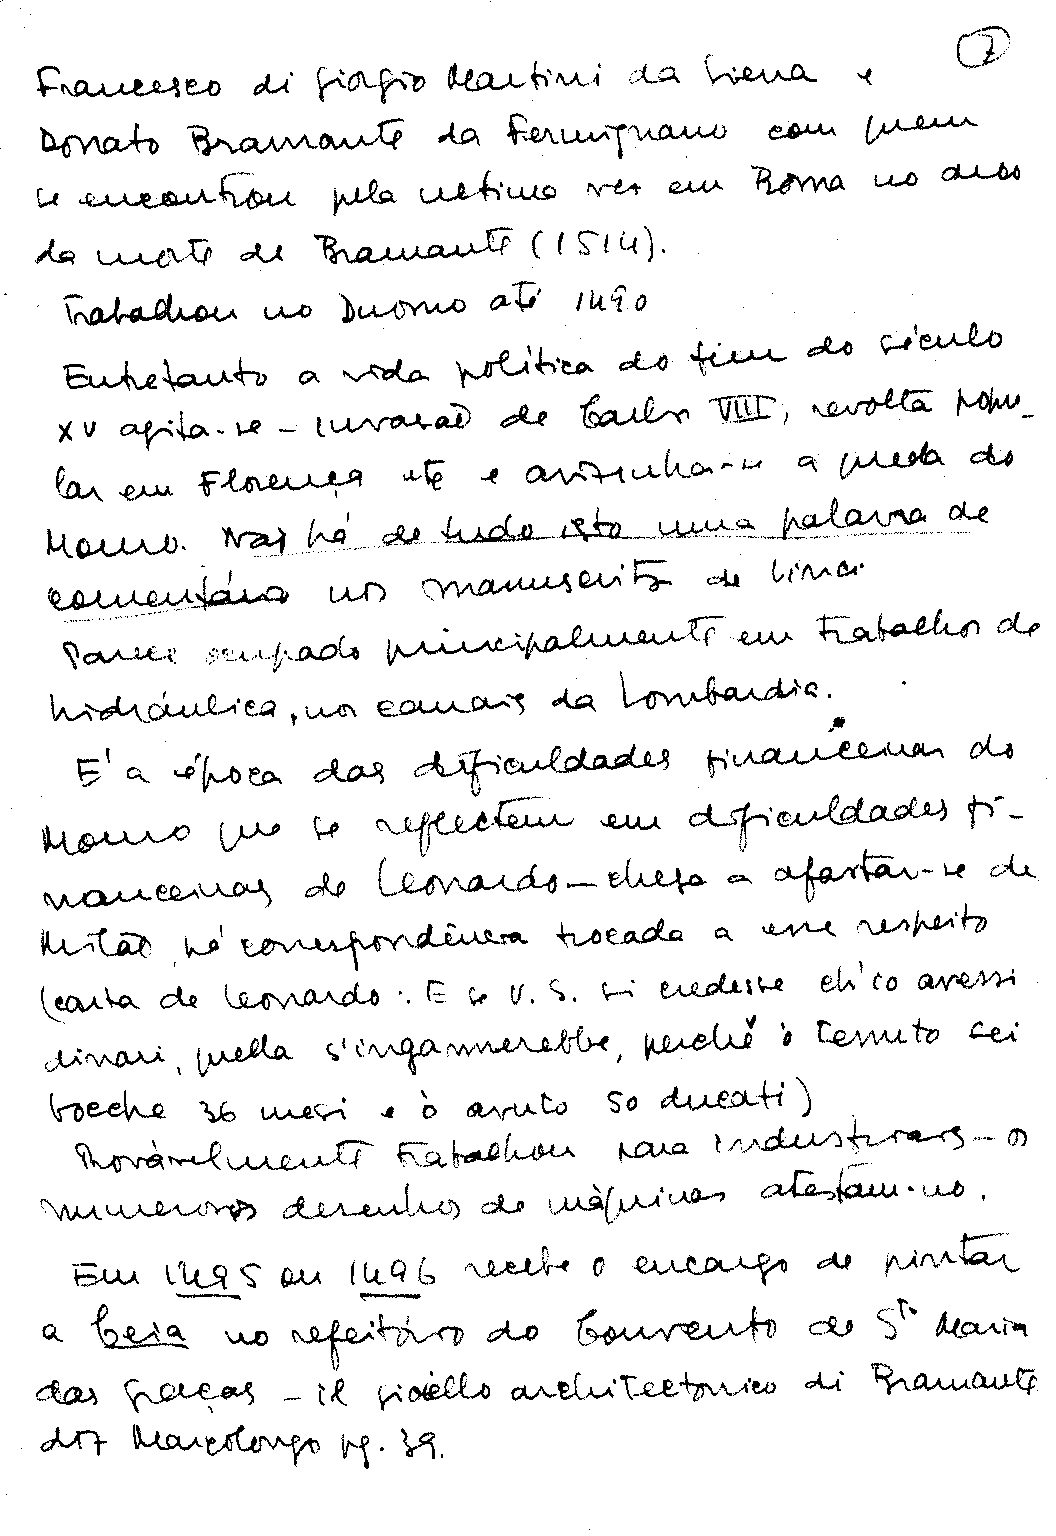 7
Francesco di Giorgio Martini da Siena e
Donato Bramante da Fermignano com quem
se encontrou pela ultima vez em Roma no ano
da morte de Bramante (1514).
Trabalhou no Duomo até 1490
Entretanto a vida política do fim do século
XV agita-se - invasão de Carlos VIII, revolta popu-
lar em Florença etc e avizinha-se a queda do
Mouro. Não há de tudo isto uma palavra de
comentário nos manuscritos de Vinci.
Parece ocupado principalmente em trabalhos de
hidráulica, nos canais da Lombardia.
É a época das dificuldades financeiras do
Mouro que se reflectem em dificuldades fi-
nanceiras de Leonardo - chega a afastar-se de
Milão, há correspondência trocada a esse respeito
(carta de Leonardo: E se V. S. si credesse ch'io avessi
dinari, quella s'ingannerebbe, perchè ò tenuto sei
bocche 36 mesi e ò avuto 50 ducati)
Provàvelmente trabalhou para industriais - os
numerosos desenhos de màquinas atestam-no.
Em 1495 ou 1496 recebe o encargo de pintar
a Ceia no refeitório do Convento de Sta Maria
das Graças - il gioiello architectonico di Bramante
diz Marcolongo pg. 39.